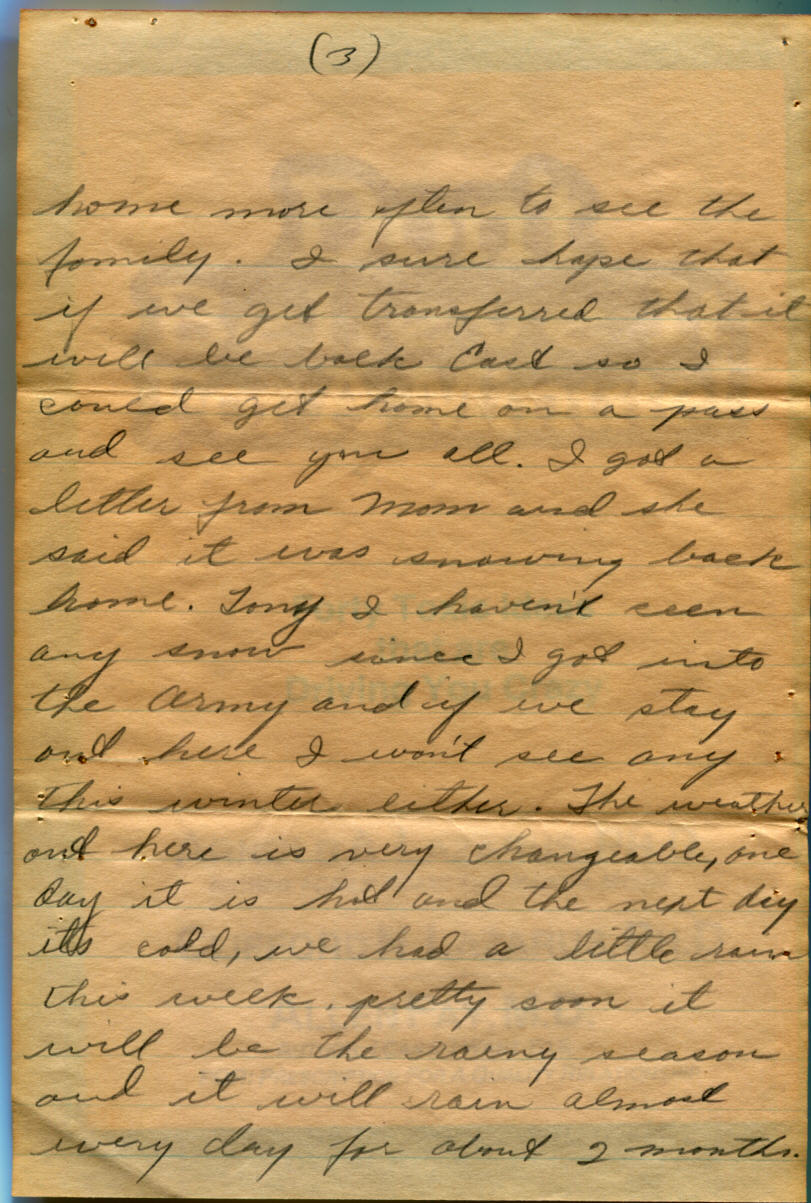 (3)
home more often to see the
family. I sure hope that
if we get transferred that it
will be back East so I
could get home on a pass
and see you all. I got a
letter from Mom and she
said it was snowing back
home. Tony I haven't seen
any snow since I got into
the Army and if we stay
out here I won't see any
this winter either. The weather
out here is very changeable, one
day it is hot and the next day
its cold, we had a little rain
this week. pretty soon it
will be the rainy season
and it will rain almost
every day for about 2 months.